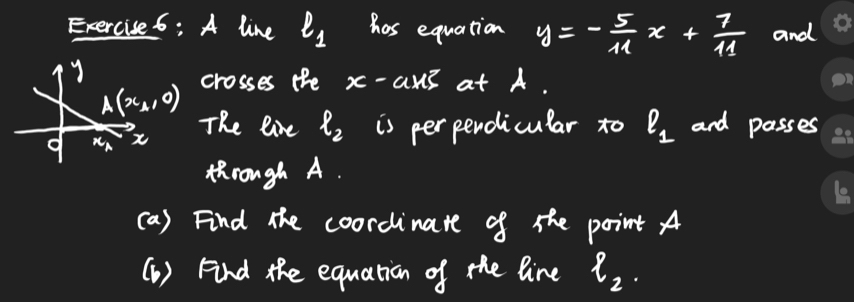 Exercise 6 : A line l₁ has equation y = - 5/11 x + 7/11 and
crosses the x - axis at A .
The line l₂ is perpendicular to l₁ and passes
through A .
(a) Find the coordinate of the point A
(b) Find the equation of the line l₂ .
y
A(x_A, 0)
O x_A x